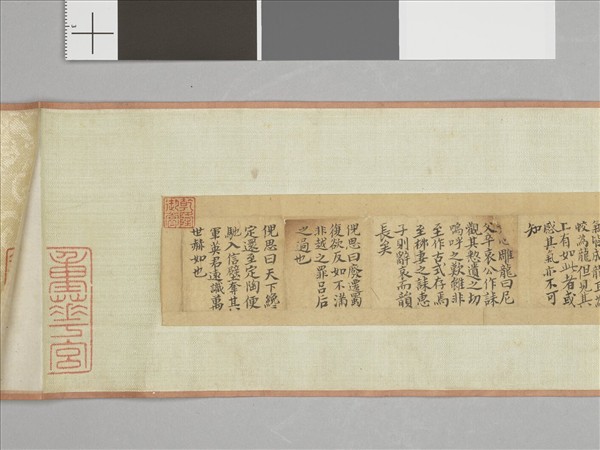 較為龍但見其
工有如此者或
感其氣亦不可
知
心雕龍曰尼
父卒哀公作誄
觀其憖遺之切
嗚呼之歎雖非
作古式存焉
至柳妻之誄惠
子則辭哀而韻
長矣
倪思曰廢遷蜀
復欲反如不滿
非越之罪呂后
之過也
倪思曰天下纔
定還至定陶便
馳入信壁奪其
軍英君遠識萬
世赫如也
乾隆
重華宮